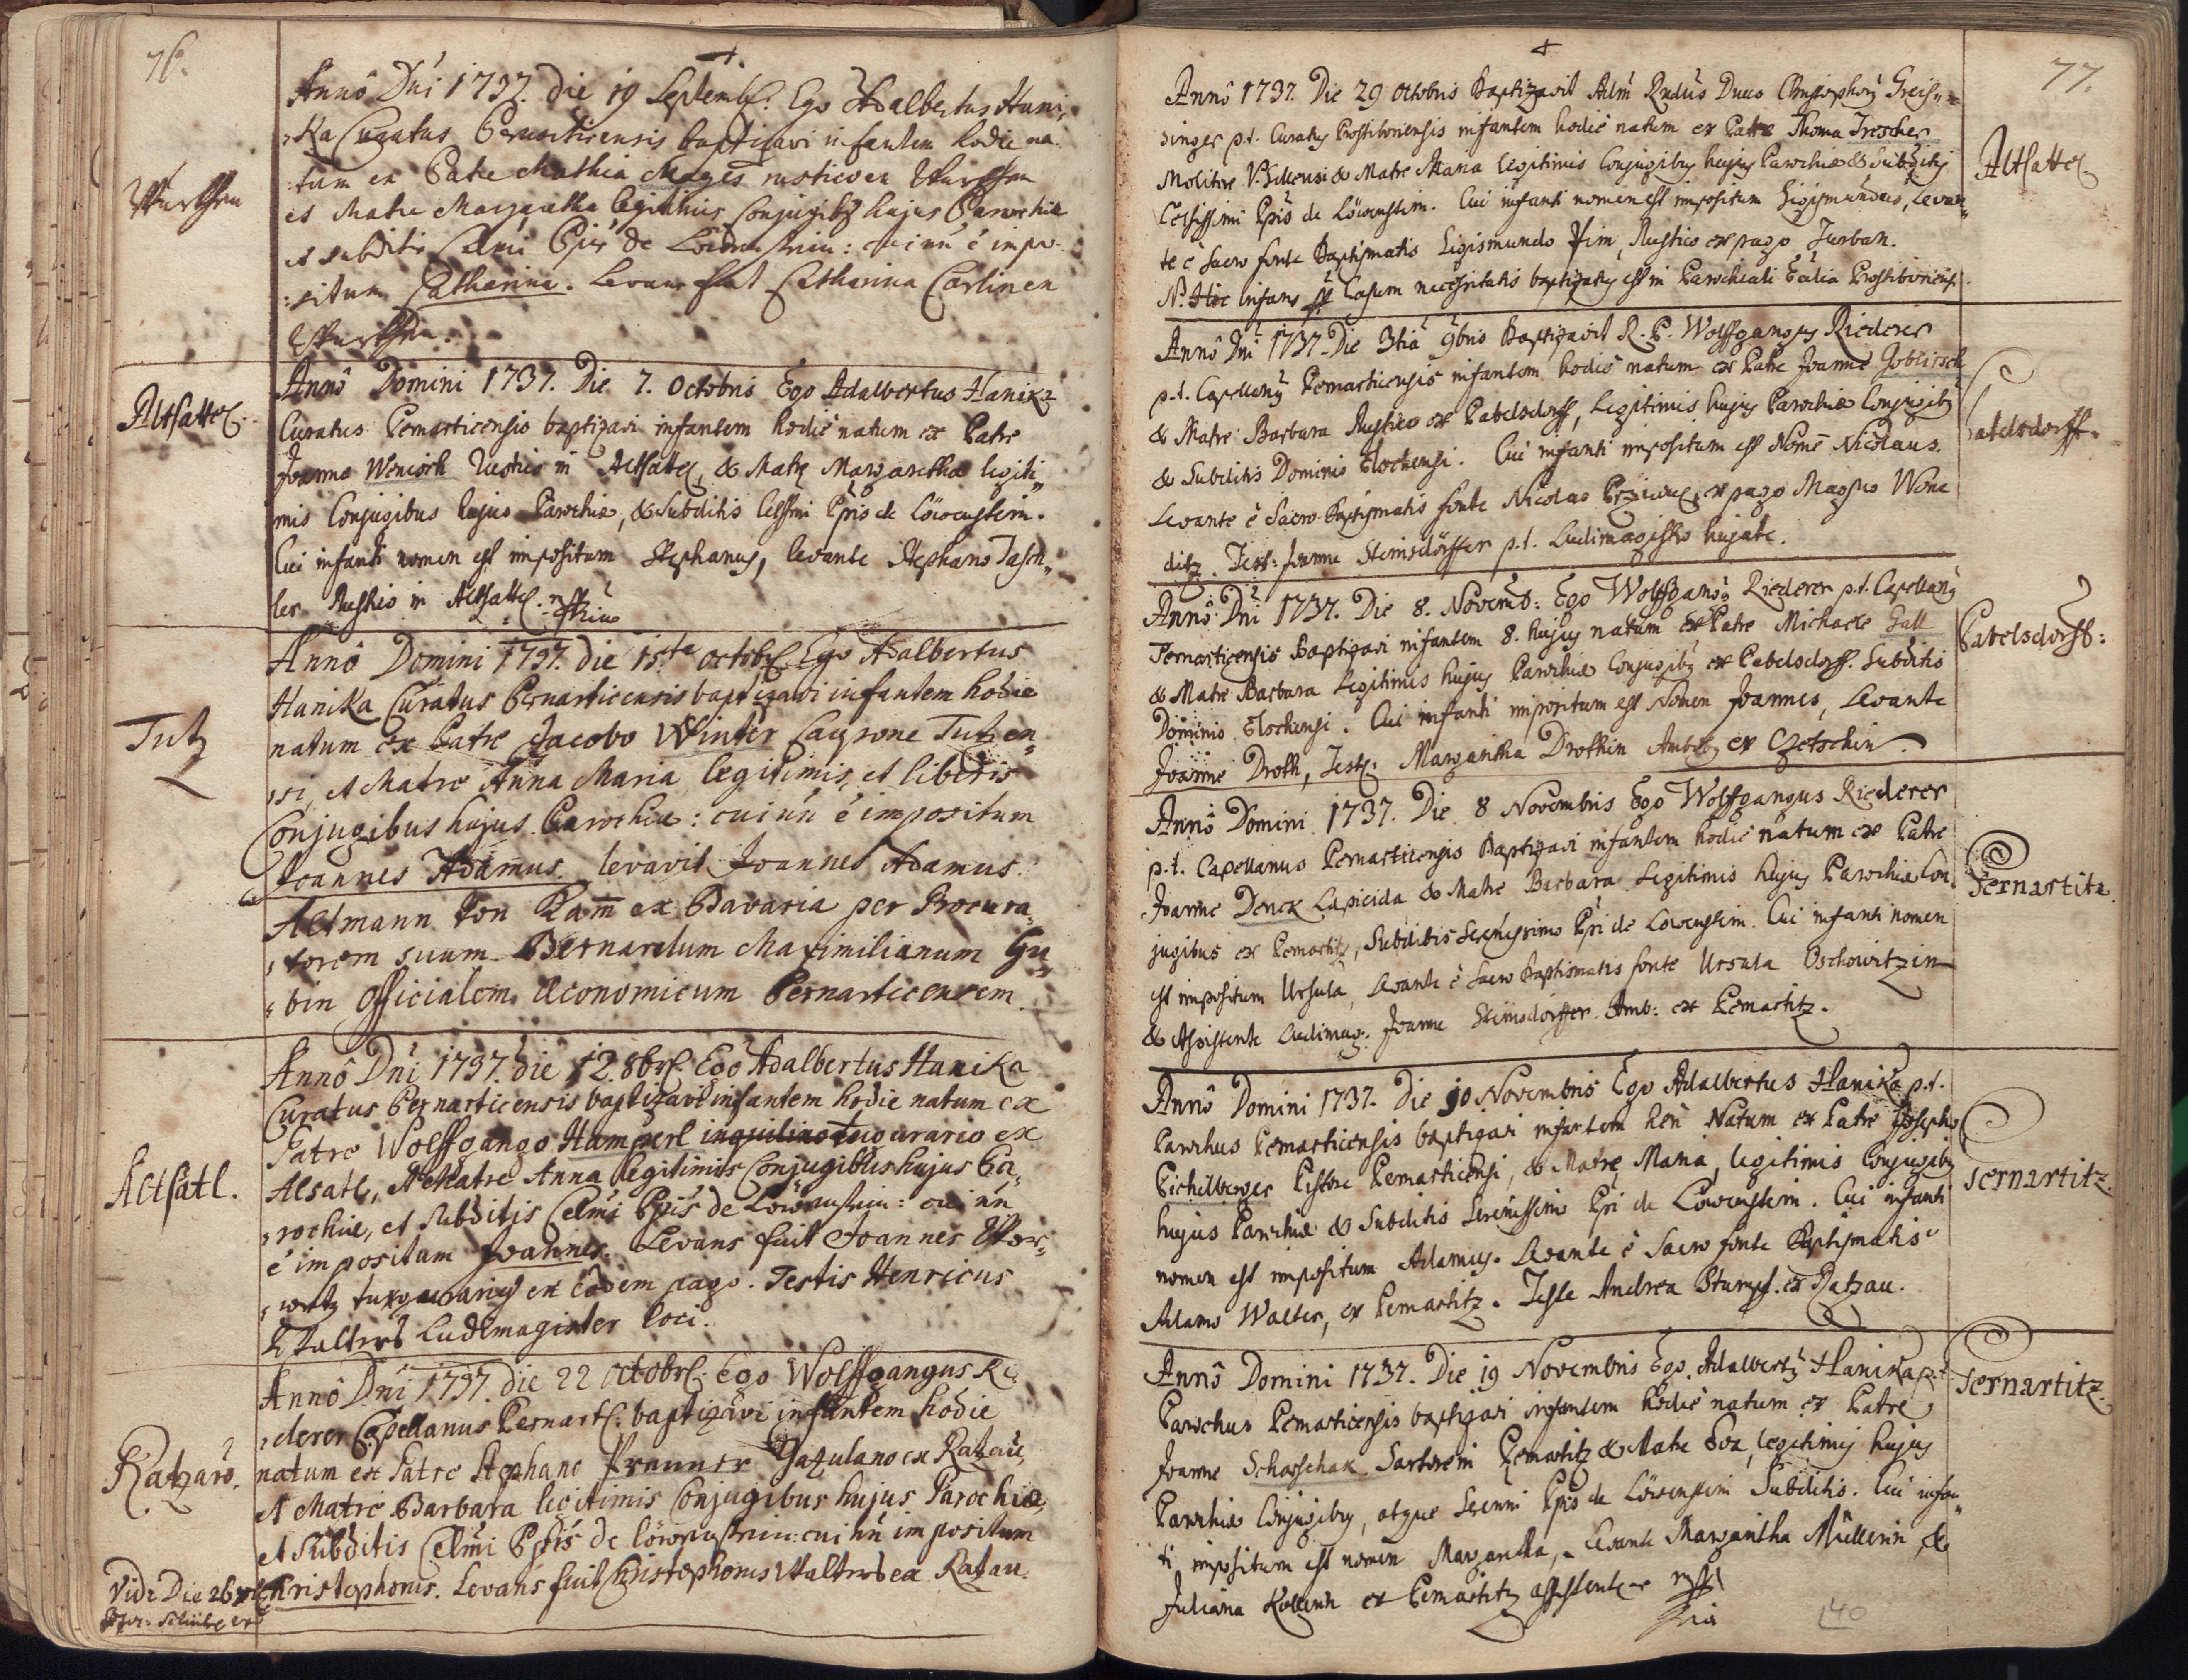 76.
Annô Dni 1737. die 19 Septemb. Ego Adalbertus Hani-
ka Curatus Pernarticensis baptizavi infantem hodie na-
tum ex Patre Mathia rustico ex
et Matre Margaretha legitimis Conjugibus hujus Parochiæ
et subditis Celsmi Ppis de Löwenstein: cui nn é impo-
situm Catharina. Levans fuit Catharina Carlin ex
Altsattel.
Annô Domini 1737. Die 7. Octobris Ego Adalbertus Hanika
Curatus Pernarticensis baptizavi infantem hodiè natum ex Patre
Joanne Wenisch Rustico in Altsattel, & Matre Margaretha legiti-
mis Conjugibus hujus Parochiæ, & Subditis Celssmi Ppis de Löwenstein.
Cui infanti nomen est impositum Stephanus, levante Stephano Tasch-
ler Rustico in Altsattel.
Tutz
Annô Domini 1737. die 15ta Octobr. Ego Adalbertus
Hanika Curatus Pernarticensis baptizavi infantem hodie
natum ex Patre Jacobo Winter Caupone Tutzen-
si, et Matre Anna Maria legitimis, et liberis
Conjugibus hujus Parochiæ: cui nn é impositum
Joannes Adamus. levavit Joannes Adamus
Altmann von Kam ex Bavaria per Procura-
torem suum Bernardum Maximilianum Gu-
bin Officialem Œconomicum Pernarticensem.
Altsatl.
Annô Dni 1737. die 12. 8br. Ego Adalbertus Hanika
Curatus Pernarticensis baptizavi infantem hodie natum ex
Patre Wolffgango Hamperl inquilino tugurario ex
Alsatl, et Matre Anna legitimis Conjugibus hujus Pa-
rochiæ, et subditis Celmi Ppis de Löwenstein: cui nn
é impositum Joannes. Levans fuit Joannes
tugurarius ex eodem pago. Testis Henricus
Ludimagister loci.
Ratzau.
Annô Dni 1737. die 22 Octobr. Ego Wolffgangus Ri-
derer Capellanus Pernart. baptizavi infantem hodie
natum ex Patre Stephano Prunner Gazulano ex Ratzau,
et Matre Barbara legitimis Conjugibus hujus Parochiæ,
et subditis Celmi Ppis de löwenstein: cui nn impositum
Christophorus. Levans fuit Christophorus ex Ratzau.
Vide Die 26
77.
Annô 1737. Die 29 Octobris Baptizavit Adm Rndus Dnus Christophorus Greis-
singer p.t. Curatus Prostiboriensis infantem hodiè natum ex Patre Thoma Trescher
Molitore & Matre Maria Legitimis Conjugibus hujus Parochiæ & Subditis
Celsissimi Ppis de Löwenstein. Cui infanti nomen est impositum Sigismundus, Levan-
te è Sacro fonte Baptismatis Sigismundo Rustico ex pago Turban.
N. Hic Infans Casum necessitatis baptizatus est in Parochiali Eccla Prostiboriensi.
Altsattel
Annô Dni 1737. Die 3tia 9bris Baptizavit R. P. Wolffgangus Riederer
p.t. Capellanus Pernarticensis infantem hodiè natum ex Patre Joanne Goblirsch
& Matre Barbara Rustico ex Pabelsdorff, Legitimis hujus Parochiæ Conjugibus
& Subditis Dominio Elschensi. Cui infanti impositum est Nomē Nicolaus.
Levante è Sacro Baptismatis fonte Nicolao ex pago Magno Wona
ditz. Test: Joanne Steinsdörffer p.t. Ludimagistro hujate.
Pabelsdorff.
Annô Dni 1737. Die 8. Novemb: Ego Wolffgangus Riederer p.t. Capellanus
Pernarticensis Baptizavi infantem 8. hujus natum ex Patre Michaele Gall
& Matre Barbara Legitimis hujus Parochiæ Conjugibus ex Pabelsdorff. Subditis
Dominio Elschensi. Cui infanti impositum est Nomen Joannes, Levante
Joanne Droth, Test: Margaritha Drothin Ambobus ex Czetschin.
Pabelsdorff:
Annô Domini 1737. Die 8 Novembris Ego Wolffgangus Riederer
p.t. Capellanus Pernarticensis Baptizavi infantem hodiè natum ex Patre
Joanne Denck Lapicida & Matre Barbara Legitimis hujus Parochiæ Con-
jugibus ex Pernartitz, Subditis Serenissimo Ppi de Löwenstein. Cui infanti nomen
est impositum Ursula, Levante è Sacro Baptismatis fonte Ursula Oschowitzin
& Assistente Ludimag: Joanne Steinsdörffer Amb: ex Pernartitz.
Pernartitz
Annô Domini 1737. Die 10 Novembris Ego Adalbertus Hanika p.t.
Parochus Pernarticensis baptizavi infantem heri Natum ex Patre Josepho
Pichelberger Pistore Pernarticensi, & Matre Maria, legitimis Conjugibus
hujus Parochiæ & Subditis Serenissimo Ppi de Löwenstein. Cui infanti
nomen est impositum Adamus. Levante è Sacro fonte Baptismatis
Adamo Walter, ex Pernartitz. Teste Andrea Stumpf ex Ratzau.
Pernartitz.
Annô Domini 1737. Die 19 Novembris Ego Adalbertus Hanika p.t.
Parochus Pernarticensis baptizavi infantem hodiè natum ex Patre
Joanne Schaschak Sartore in Pernartitz & Matre Eva, legitimis hujus
Parochiæ Conjugibus, atque Serenmi Ppis de Löwenstein Subditis. Cui infan-
ti impositum est nomen Margaretha, Levante Margaritha Müllerin &
Juliana Kollerin ex Pernartitz assistente
Pernartitz.
140